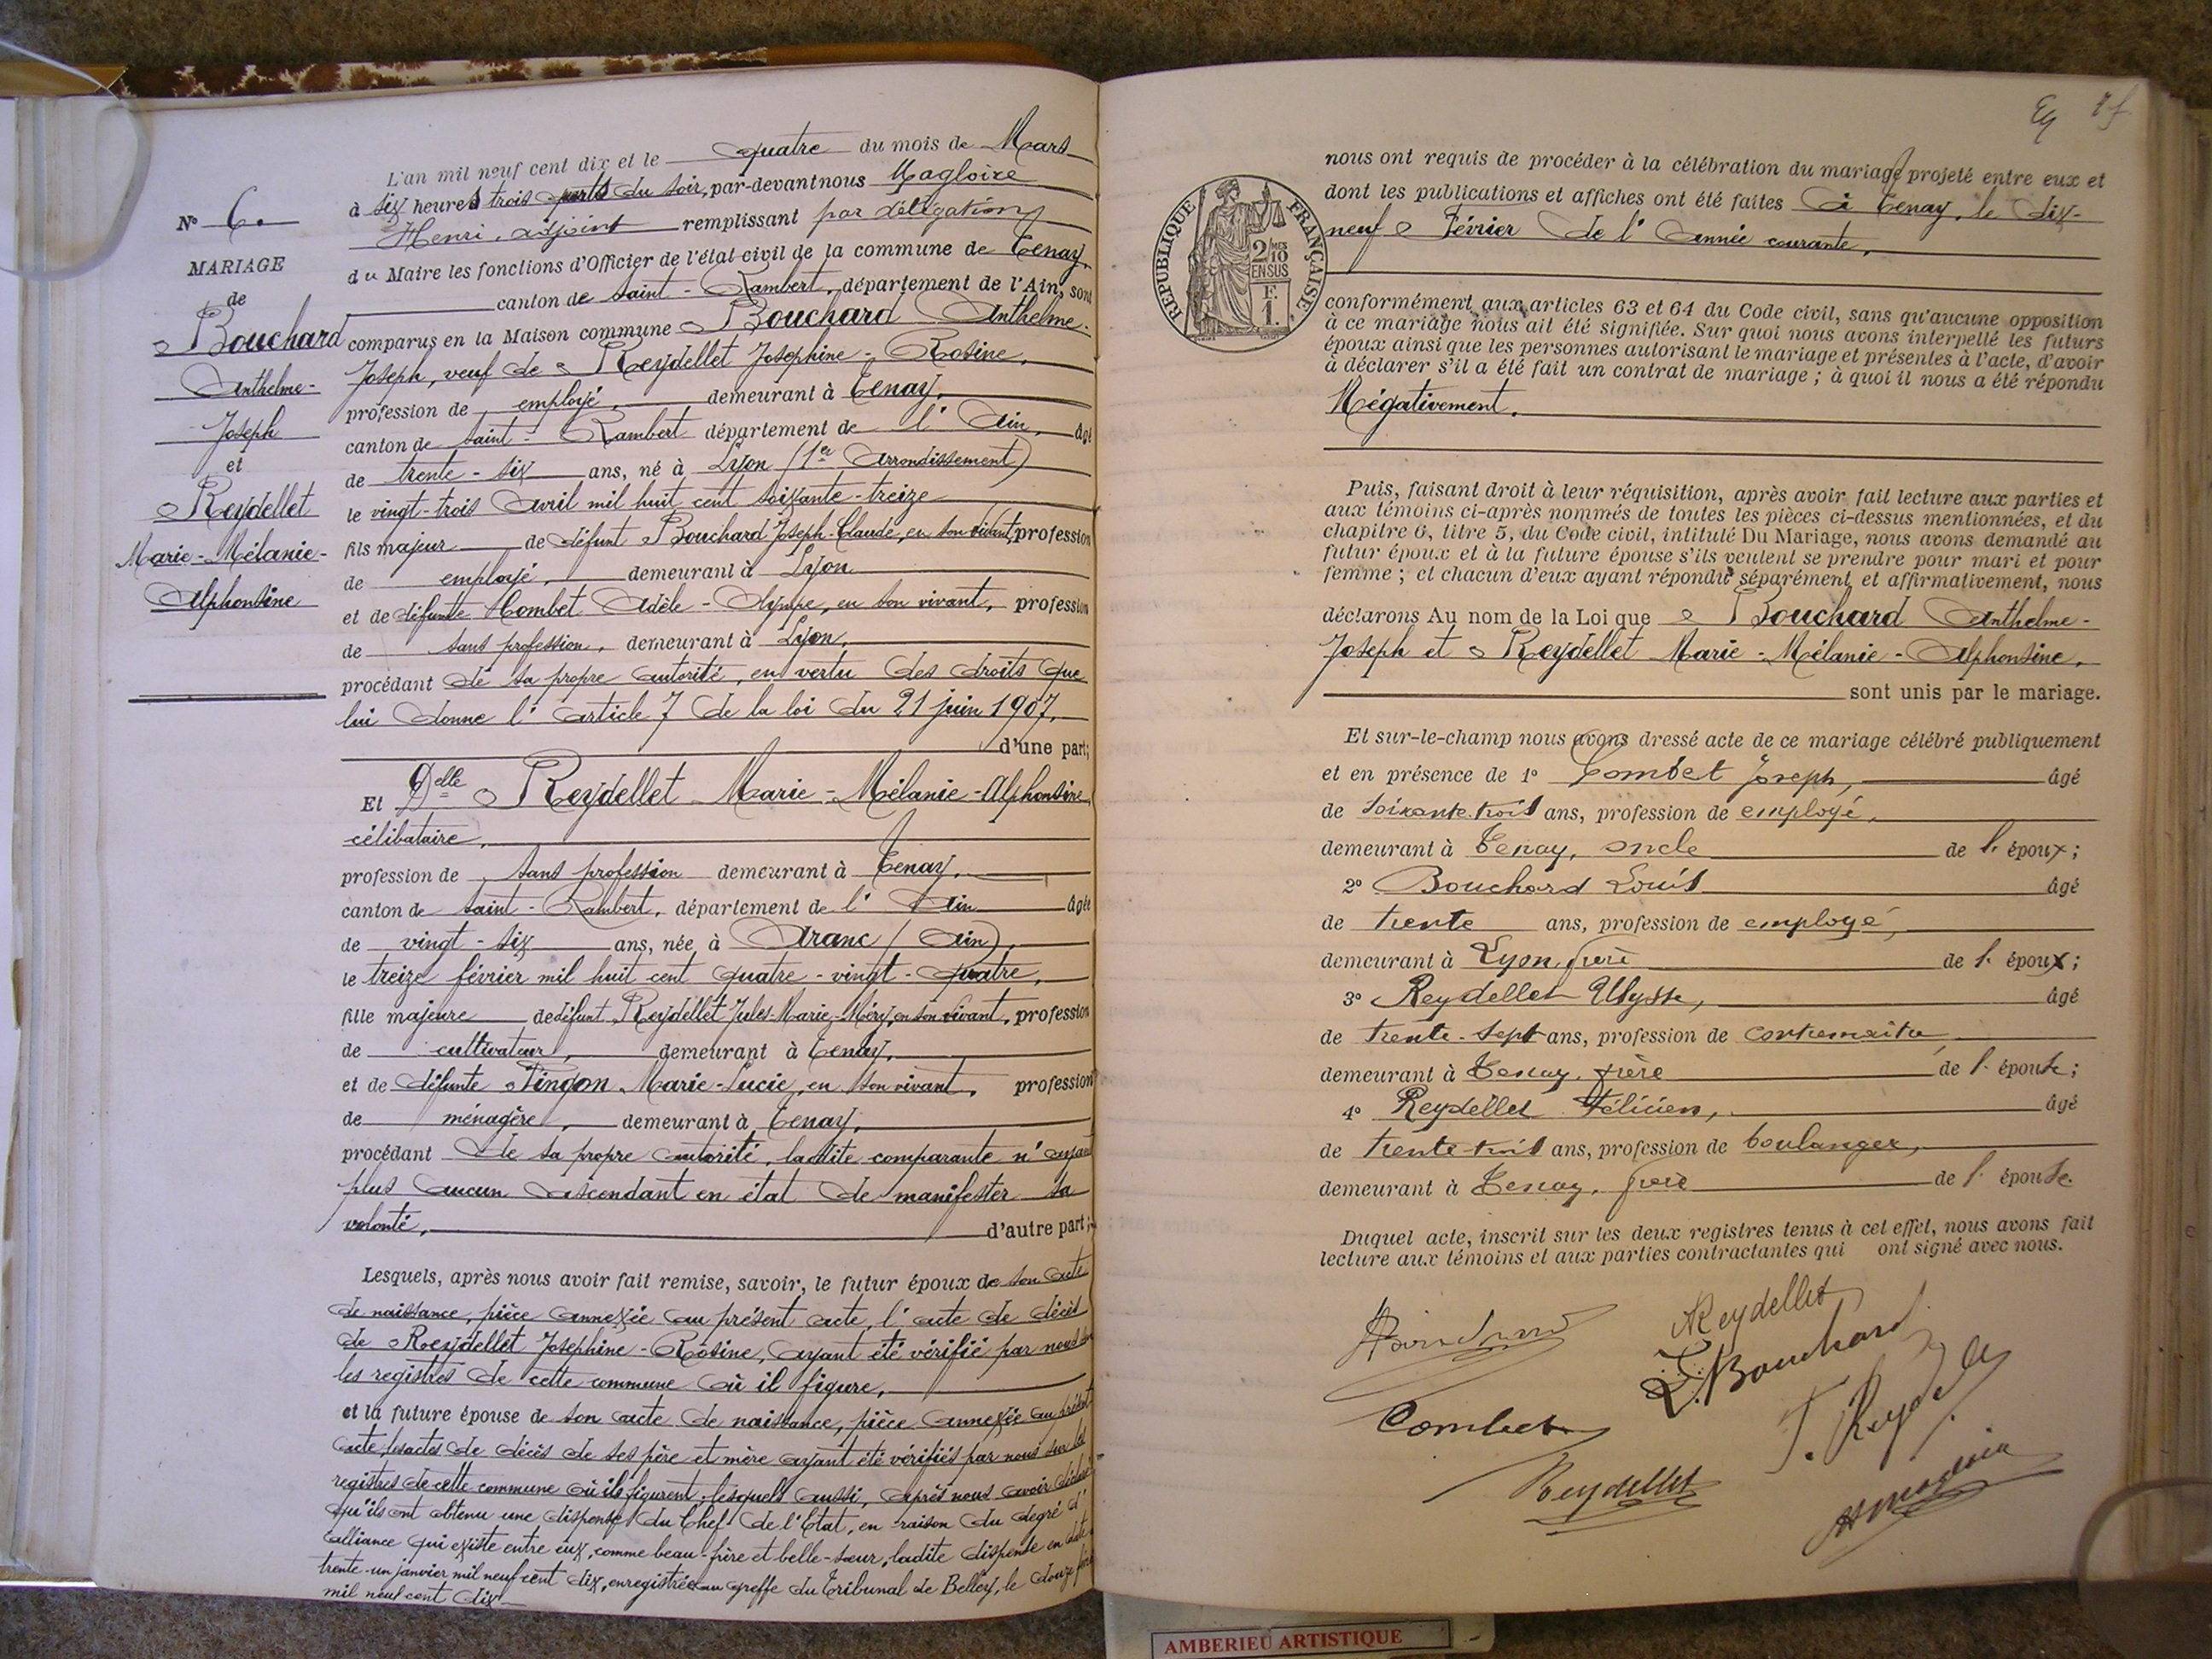 N° 6.
MARIAGE
de
Bouchard
Anthelme-
Joseph
et
Reydellet
Marie-Mélanie-
Alphonsine
L'an mil neuf cent dix et le quatre du mois de Mars
à six heures trois quarts du soir, par-devant nous Magloire
Henri, adjoint remplissant par délégation
du Maire les fonctions d'Officier de l'état-civil de la commune de Tenay,
canton de Saint-Rambert, département de l'Ain, sont
comparus en la Maison commune Bouchard Anthelme-
Joseph, veuf de Reydellet Josephine-Rosine,
profession de employé, demeurant à Tenay,
canton de Saint-Rambert département de l'Ain, âgé
de trente-six ans, né à Lyon (1er Arrondissement)
le vingt-trois Avril mil huit cent soixante-treize
fils majeur de défunt Bouchard Joseph-Claude, en son vivant, profession
de employé, demeurant à Lyon
et de défunte Combet Adèle-Olympe, en son vivant, profession
de sans profession, demeurant à Lyon,
procédant de sa propre autorité, en vertu des droits que
lui donne l'article 7 de la loi du 21 juin 1907,
d'une part;
Et Delle Reydellet Marie-Mélanie-Alphonsine,
célibataire,
profession de sans profession demeurant à Tenay,
canton de Saint-Rambert, département de l'Ain âgée
de vingt-six ans, née à Aranc (Ain),
le treize février mil huit cent quatre-vingt-quatre,
fille majeure de défunt Reydellet Jules-Marie-Méry, en son vivant, profession
de cultivateur, demeurant à Tenay,
et de défunte Pingon Marie-Lucie, en son vivant, profession
de ménagère, demeurant à Tenay,
procédant de sa propre autorité, ladite comparante n'ayant
plus aucun ascendant en état de manifester sa
volonté, d'autre part;
Lesquels, après nous avoir fait remise, savoir, le futur époux de son acte
de naissance, pièce annexée au présent acte, l'acte de décès
de Reydellet Josephine-Rosine, ayant été vérifié par nous sur
les registres de cette commune où il figure,
et la future épouse de son acte de naissance, pièce annexée au présent
acte, les actes de décès de ses père et mère ayant été vérifiés par nous sur les
registres de cette commune où ils figurent, lesquels aussi, après nous avoir déclaré
qu'ils ont obtenu une dispense du Chef de l'Etat, en raison du degré d'
alliance qui existe entre eux, comme beau-frère et belle-sœur, ladite dispense en date
trente-un janvier mil neuf cent dix, enregistrée au greffe du Tribunal de Belley, le douze
mil neuf cent dix
RÉPUBLIQUE FRANÇAISE
2/10 MES
EN SUS
F.
1.
nous ont requis de procéder à la célébration du mariage projeté entre eux et
dont les publications et affiches ont été faites à Tenay, le dix-
neuf Février de l'Année courante,
conformément aux articles 63 et 64 du Code civil, sans qu'aucune opposition
à ce mariage nous ait été signifiée. Sur quoi nous avons interpellé les futurs
époux ainsi que les personnes autorisant le mariage et présentes à l'acte, d'avoir
à déclarer s'il a été fait un contrat de mariage ; à quoi il nous a été répondu
Négativement.
Puis, faisant droit à leur réquisition, après avoir fait lecture aux parties et
aux témoins ci-après nommés de toutes les pièces ci-dessus mentionnées, et du
chapitre 6, titre 5, du Code civil, intitulé Du Mariage, nous avons demandé au
futur époux et à la future épouse s'ils veulent se prendre pour mari et pour
femme ; et chacun d'eux ayant répondu séparément et affirmativement, nous
déclarons Au nom de la Loi que Bouchard Anthelme-
Joseph et Reydellet Marie-Mélanie-Alphonsine,
sont unis par le mariage.
Et sur-le-champ nous avons dressé acte de ce mariage célébré publiquement
et en présence de 1° Combet Joseph, âgé
de soixante-trois ans, profession de employé,
demeurant à Tenay, oncle de l'époux;
2° Bouchard Louis âgé
de trente ans, profession de employé,
demeurant à Lyon, frère de l'époux;
3° Reydellet Ulysse, âgé
de trente-sept ans, profession de contremaitre,
demeurant à Tenay, frère de l'épouse;
4° Reydellet Félicien, âgé
de trente-trois ans, profession de boulanger,
demeurant à Tenay, frère de l'épouse.
Duquel acte, inscrit sur les deux registres tenus à cet effet, nous avons fait
lecture aux témoins et aux parties contractantes qui ont signé avec nous.
Reydellet
L. Bouchard
Combet
Reydellet
AMBERIEU ARTISTIQUE